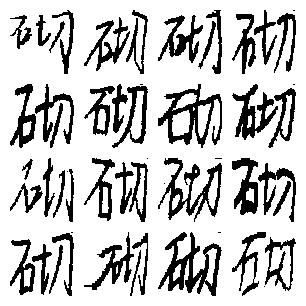 砌砌砌砌
砌砌砌砌
砌砌砌砌
砌砌砌砌